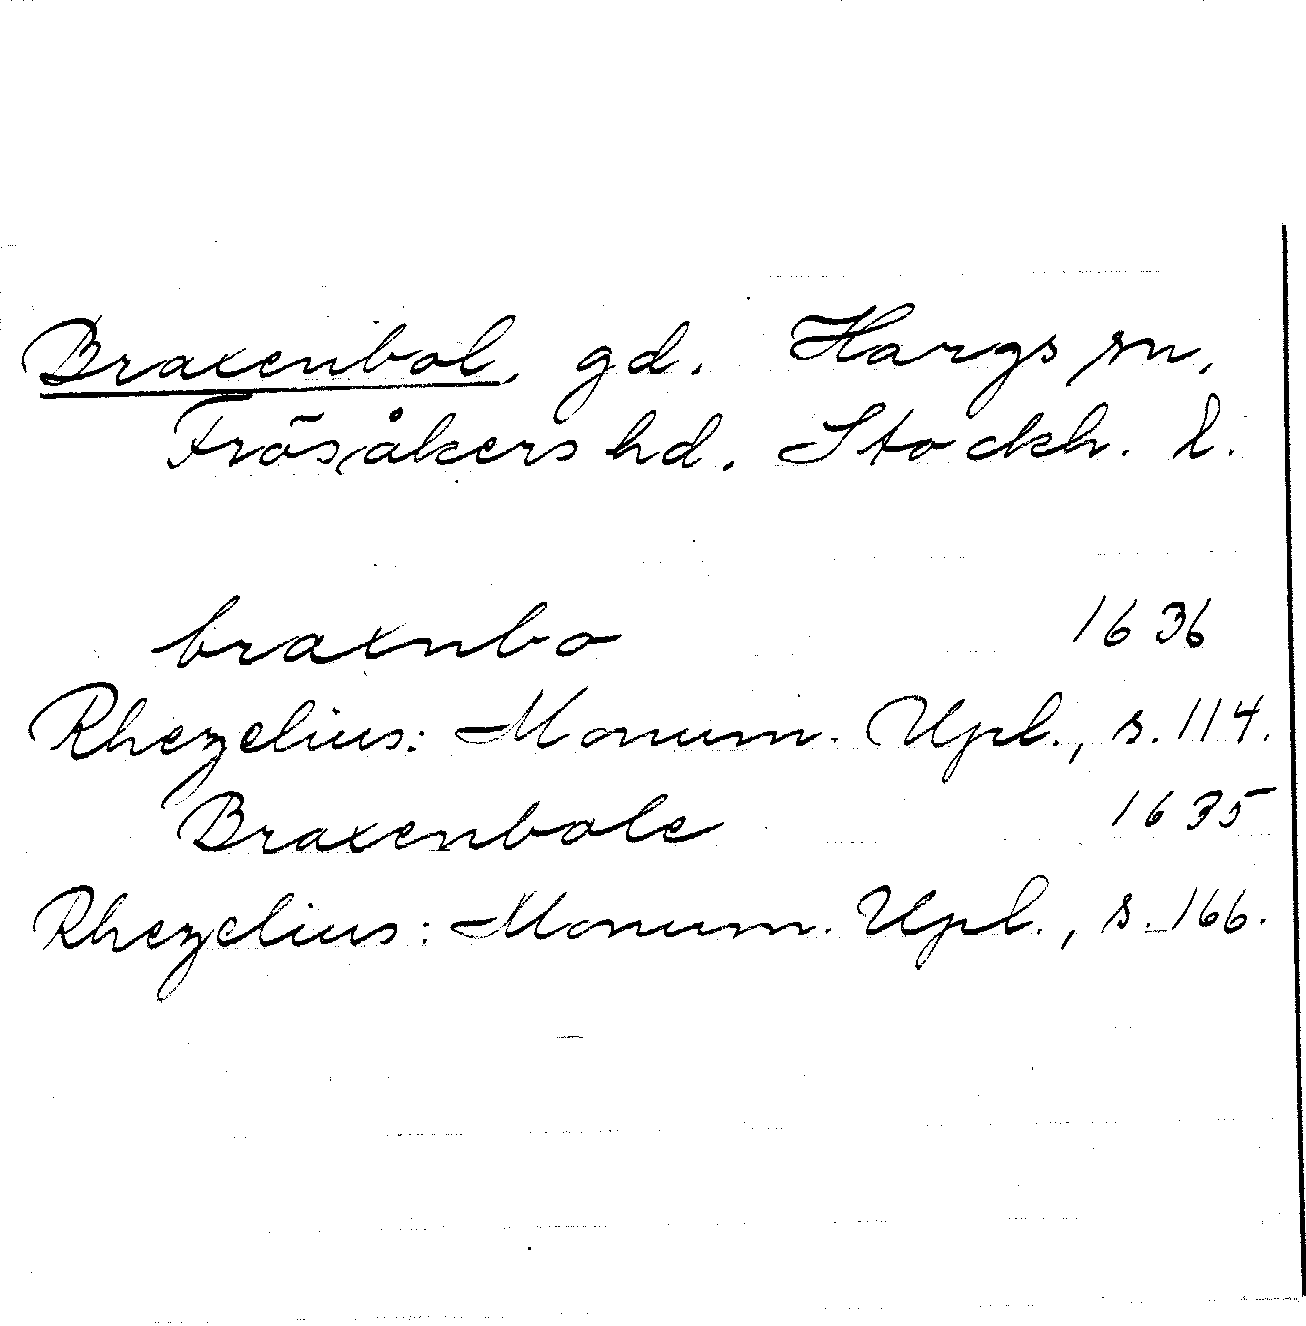 Braxenbol, gd. Hargs sn,
Frösåkers hd. Stockh. l.
braxnbo 1636
Rhezelius: Monum. Upl., s. 114.
Braxenbole 1635
Rhezelius: Monum. Upl., s. 166.